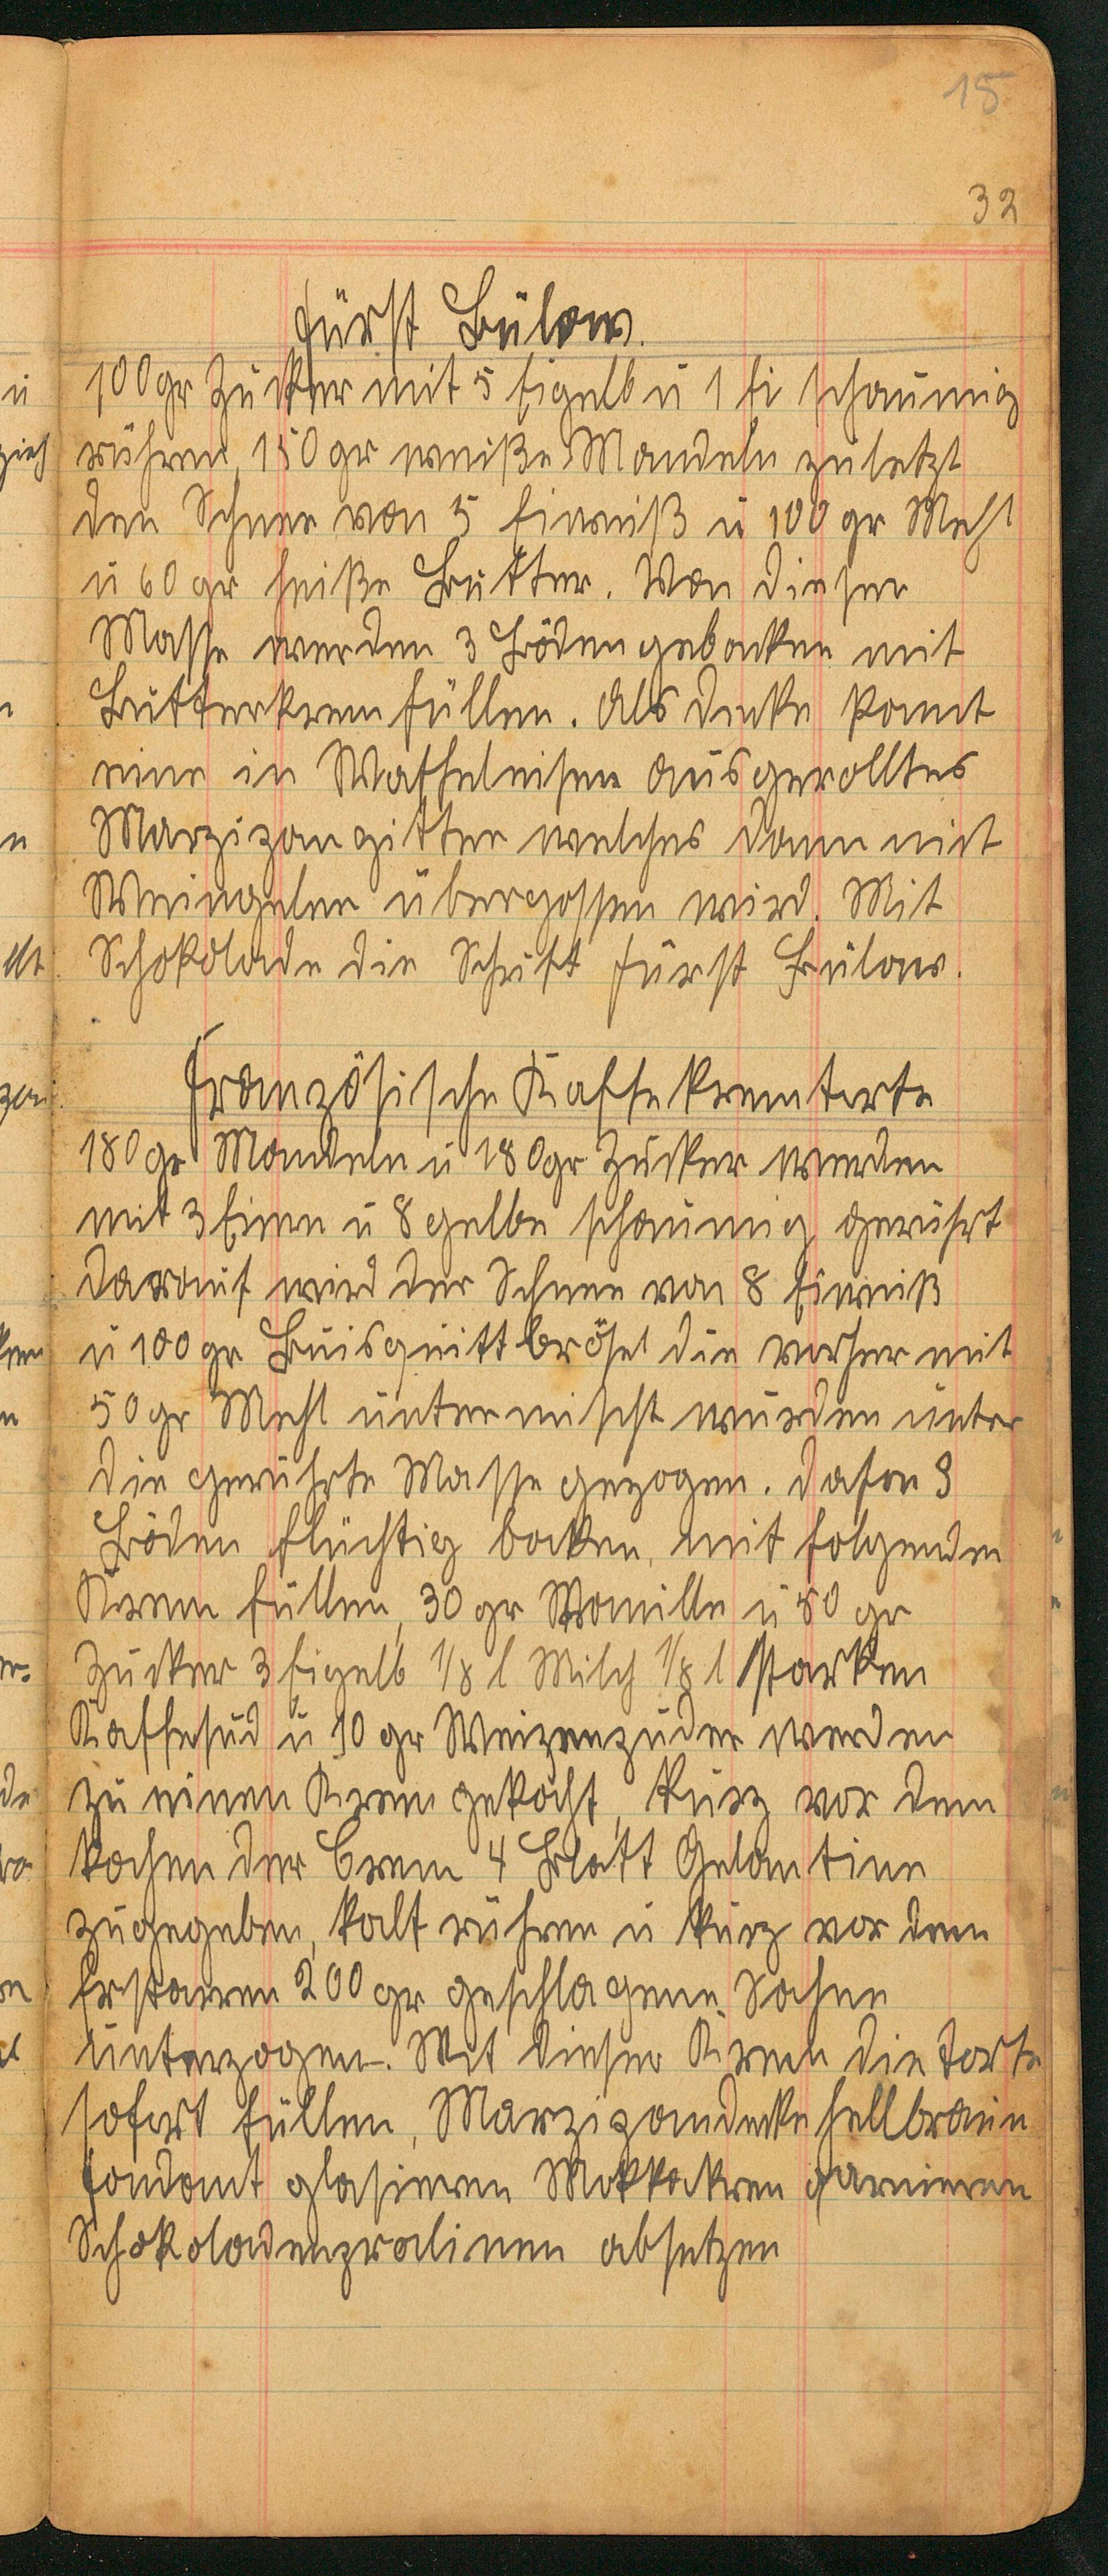 15
32
Fürst Bülow.
100gr Zucker mit 5 Eigelb ü 1 Ei schaumig
rühren, 150 gr weiße Mandeln zuletzt
den Schnee von 5 Eiweiß ü 100 gr Mehl
ü 60 gr heiße Butter. Von dieser
Masse werden 3 Böden gebacken mit
Butterkrem füllen. Als Decke komt
eine in Waffeleisen ausgerolltes
Marzipangitter welches dann mit
Weingelee übergossen wird. Mit
Schokolade die Schrift Fürst Bülow.
Französische Kaffekremtorte
180 gr Mandeln ü 180gr Zucker werden
mit 3 Eiern ü 8 gelbe schaumig gerührt
darauf wird der Schnee von 8 Eiweiß
ü 100 gr Buisquittbrösel die vorher mit
50 gr Mehl untermischt wurden unter
die gerührte Masse gezogen. Dafon 3
Böden flüchtig backen, mit folgenden
Krem füllen, 30 gr Wanille ü 50 gr
Zucker 3 Eigelb 1/8 l Milch 1/8 l starken
Kaffesud ü 10 gr Weizenpuder werden
zu einen Krem gekocht, kurz vor dem
kochen der Crem 4 Blatt Gelantine
zugegeben, kalt rühren ü kurz vor dem
Erstarren 200 gr geschlagene Sahne
unterzogen. Mit dieser Krem die Torte
sofort füllen, Marzipandecke hellbraun
Fondant glasieren Mokkakrem garnieren
Schokoladenpralinen absetzen